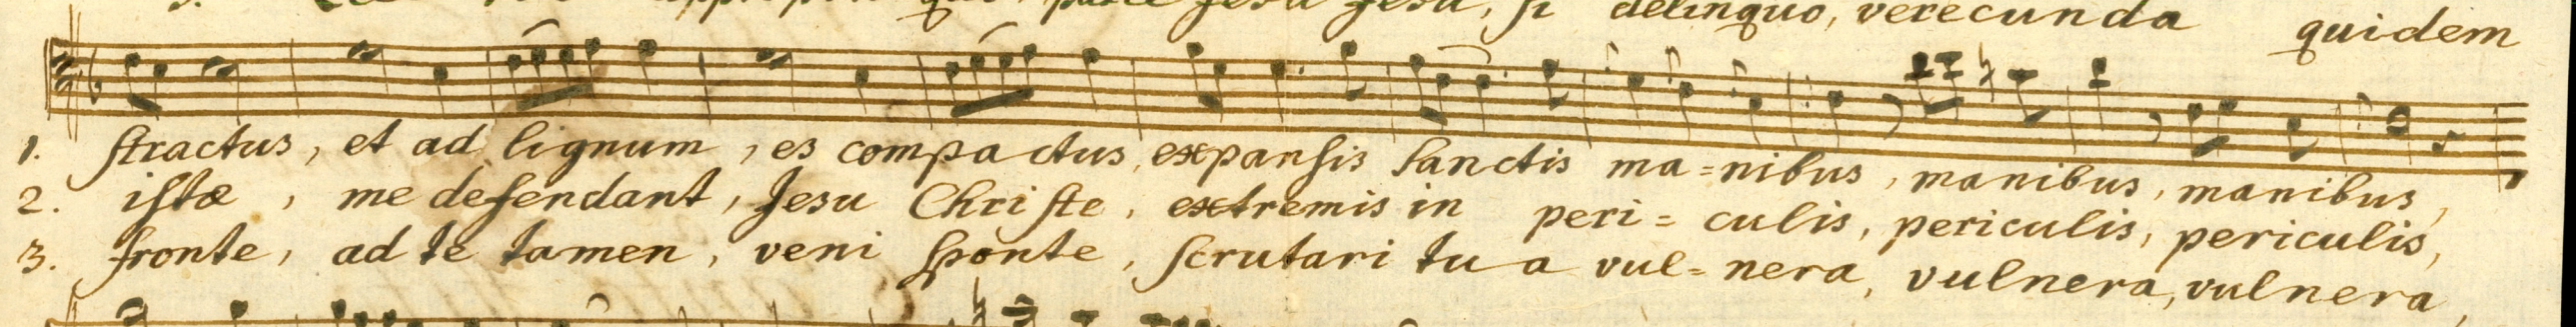 parce Jesu Jesu, si delinquo, verecunda quidem
1. stractus, et ad lignum, es compactus, expansis sanctis ma=nibus, manibus, manibus,
2. istæ, me defendant, Jesu Christe, extremis in peri=culis, periculis, periculis,
3. fronte, ad te tamen, veni sponte, scrutari tua vul=nera, vulnera, vulnera,